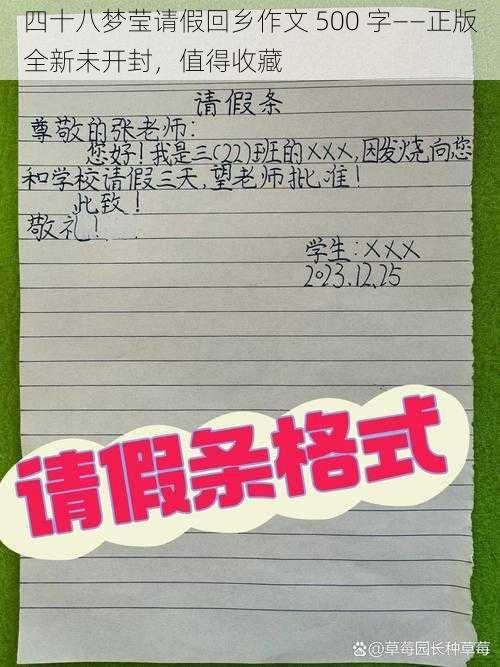 四十八梦莹请假回乡作文 500 字——正版
全新未开封，值得收藏
请假条
尊敬的张老师：
您好！我是三(22)班的XXX,因发烧,向您
和学校请假三天,望老师批准！
此致！
敬礼！
学生：XXX
2023.12.25
请假条格式
@草莓园长种草莓